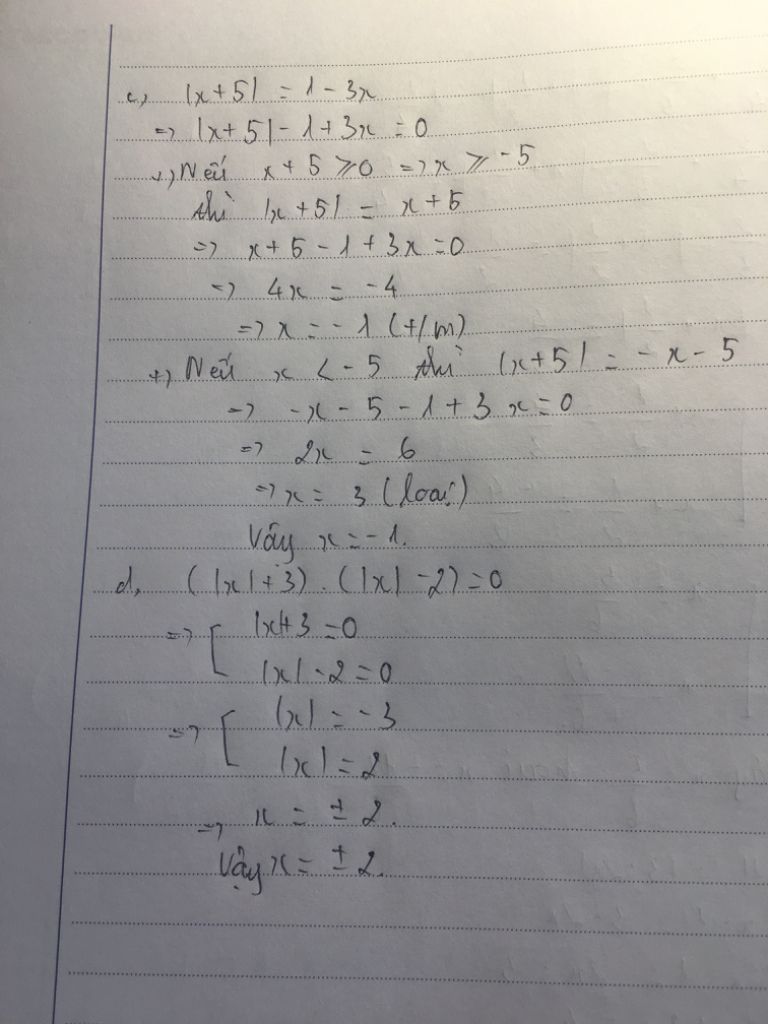 c, |x+5| = 1 - 3x
=> |x+5| - 1 + 3x = 0
+, Nếu x + 5 ⩾ 0 => x ⩾ -5
thì |x+5| = x+5
=> x+5 - 1 + 3x = 0
=> 4x = -4
=> x = -1 (t/m)
+, Nếu x < -5 thì |x+5| = -x - 5
=> -x - 5 - 1 + 3x = 0
=> 2x = 6
=> x = 3 (loại)
Vậy x = -1.
d, (|x|+3) . (|x| -2) = 0
=> [ |x|+3 = 0
|x| - 2 = 0
=> [ |x| = -3
|x| = 2
=> x = ± 2.
Vậy x = ± 2.